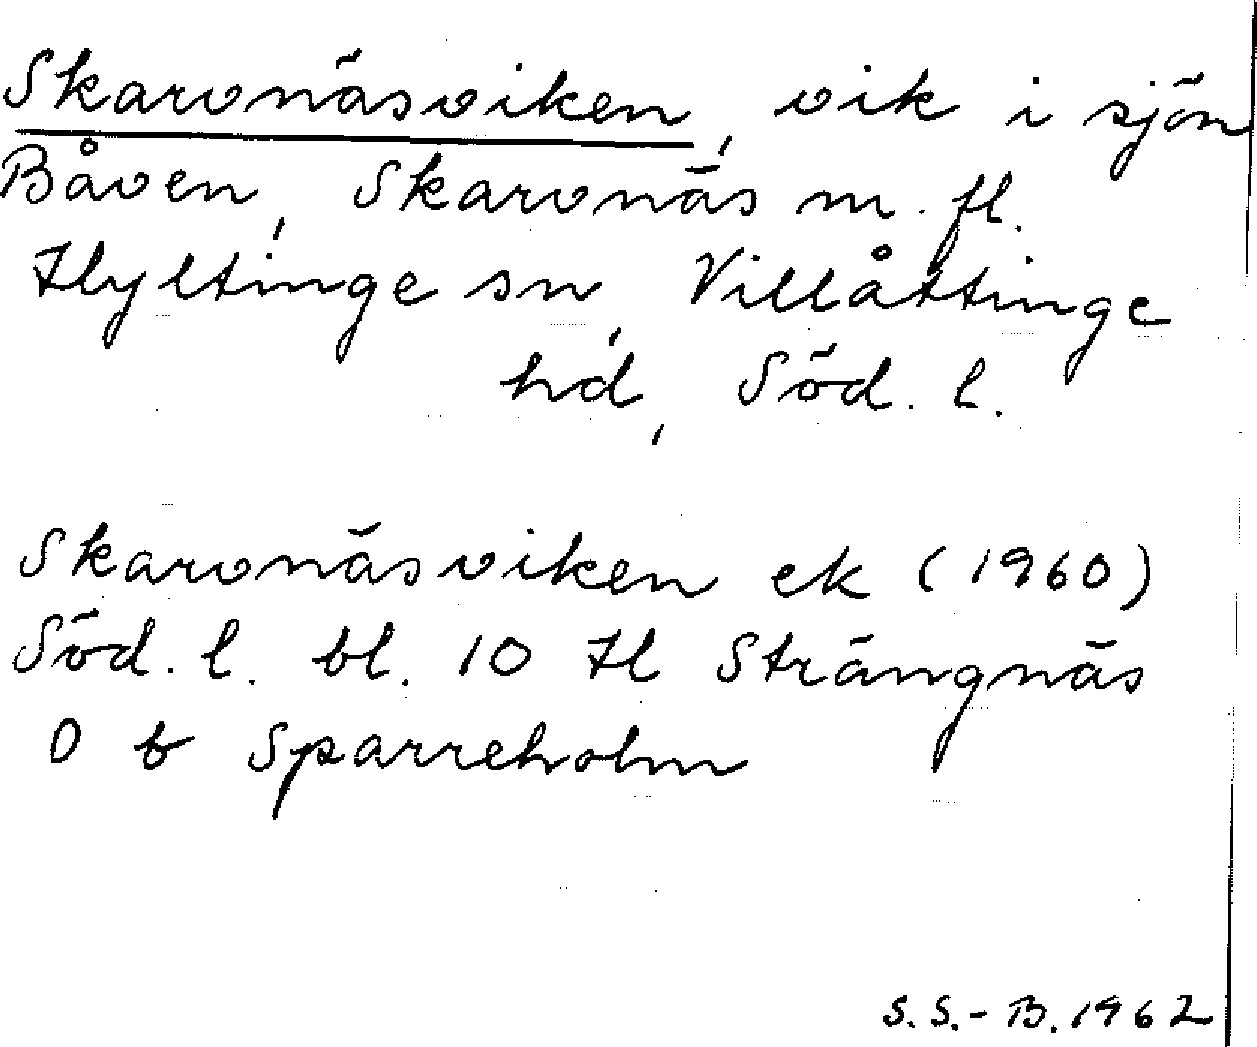 Skarvnäsviken, vik i sjön
Båven, Skarvnäs m. fl.
Hyltinge sn, Villåttinge
hd, Söd. l.
Skarvnäsviken ek (1960)
Söd. l. bl. 10 H Strängnäs
0 b Sparreholm
S. S.-B. 1962